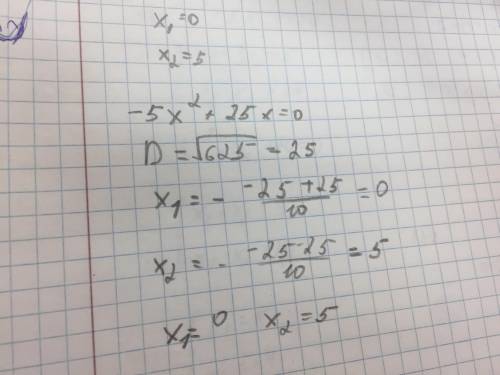 x₁=0
x₂=5
-5x²+25x=0
D=√625=25
x₁=- (-25+25)/10=0
x₂=- (-25-25)/10=5
x₁=0 x₂=5